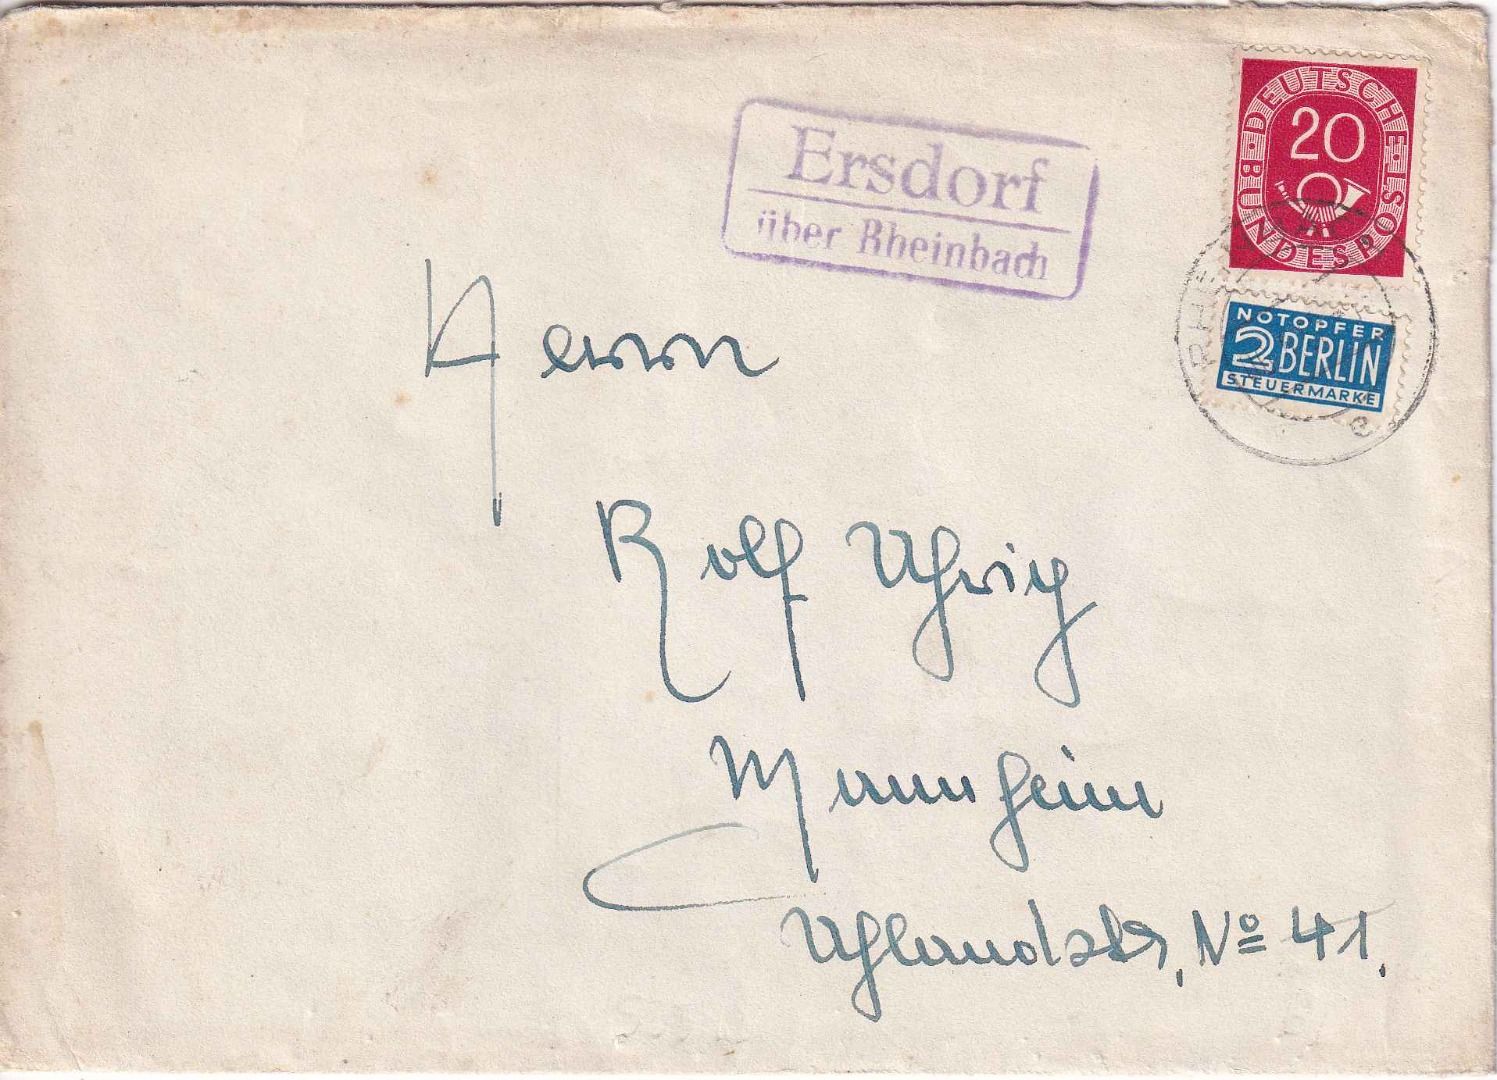 Ersdorf
über Rheinbach
DEUTSCHE BUNDESPOST
20
NOTOPFER
2 BERLIN
STEUERMARKE
Herrn
Rolf Uhrig
Mannheim
Uhlandstr, No 41.